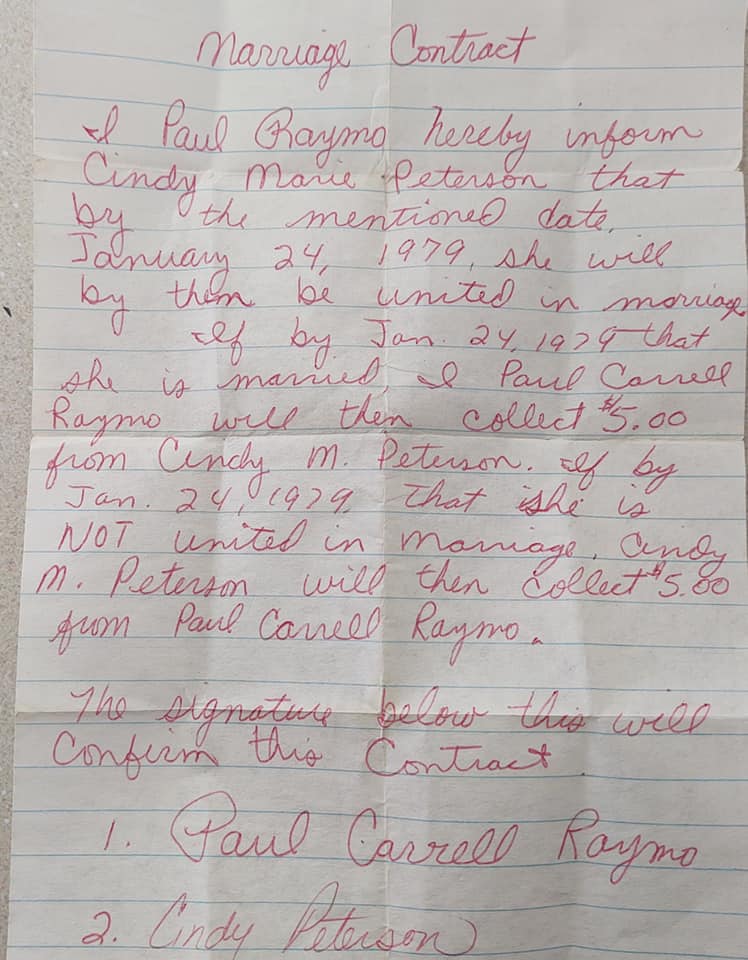 Marriage Contract
I Paul Raymo hereby inform
Cindy Marie Peterson that
by the mentioned date,
January 24, 1979, she will
by them be united in marriage
If by Jan. 24, 1979 that
she is married I Paul Carrell
Raymo will then collect $5.00
from Cindy M. Peterson. If by
Jan. 24, 1979, that she is
NOT united in marriage, Cindy
M. Peterson will then collect $5.00
from Paul Carrell Raymo.
The signature below this will
Confirm this Contract.
1. Paul Carrell Raymo
2. Cindy Peterson